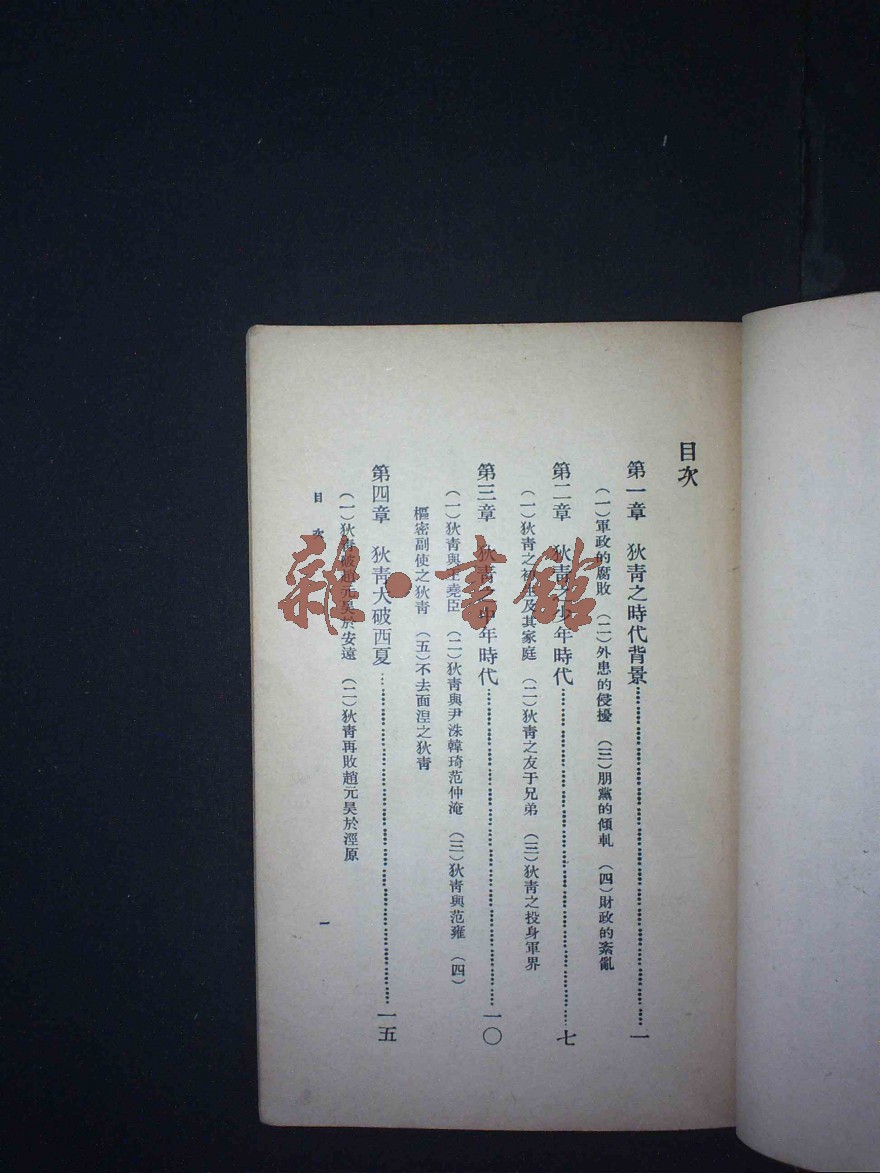 目次
第一章　狄靑之時代背景……一
（一）軍政的腐敗　（二）外患的侵擾　（三）朋黨的傾軋　（四）財政的紊亂
第二章　狄靑之少年時代……七
（一）狄靑之初生及其家庭　（二）狄靑之友于兄弟　（三）狄靑之投身軍界
第三章　狄靑之中年時代……一〇
（一）狄靑與王堯臣　（二）狄靑與尹洙韓琦范仲淹　（三）狄靑與范雍　（四）
樞密副使之狄靑　（五）不去面涅之狄靑
第四章　狄靑大破西夏……一五
（一）狄靑破趙元昊於安遠　（二）狄靑再敗趙元昊於涇原
目次
一
雜·書館